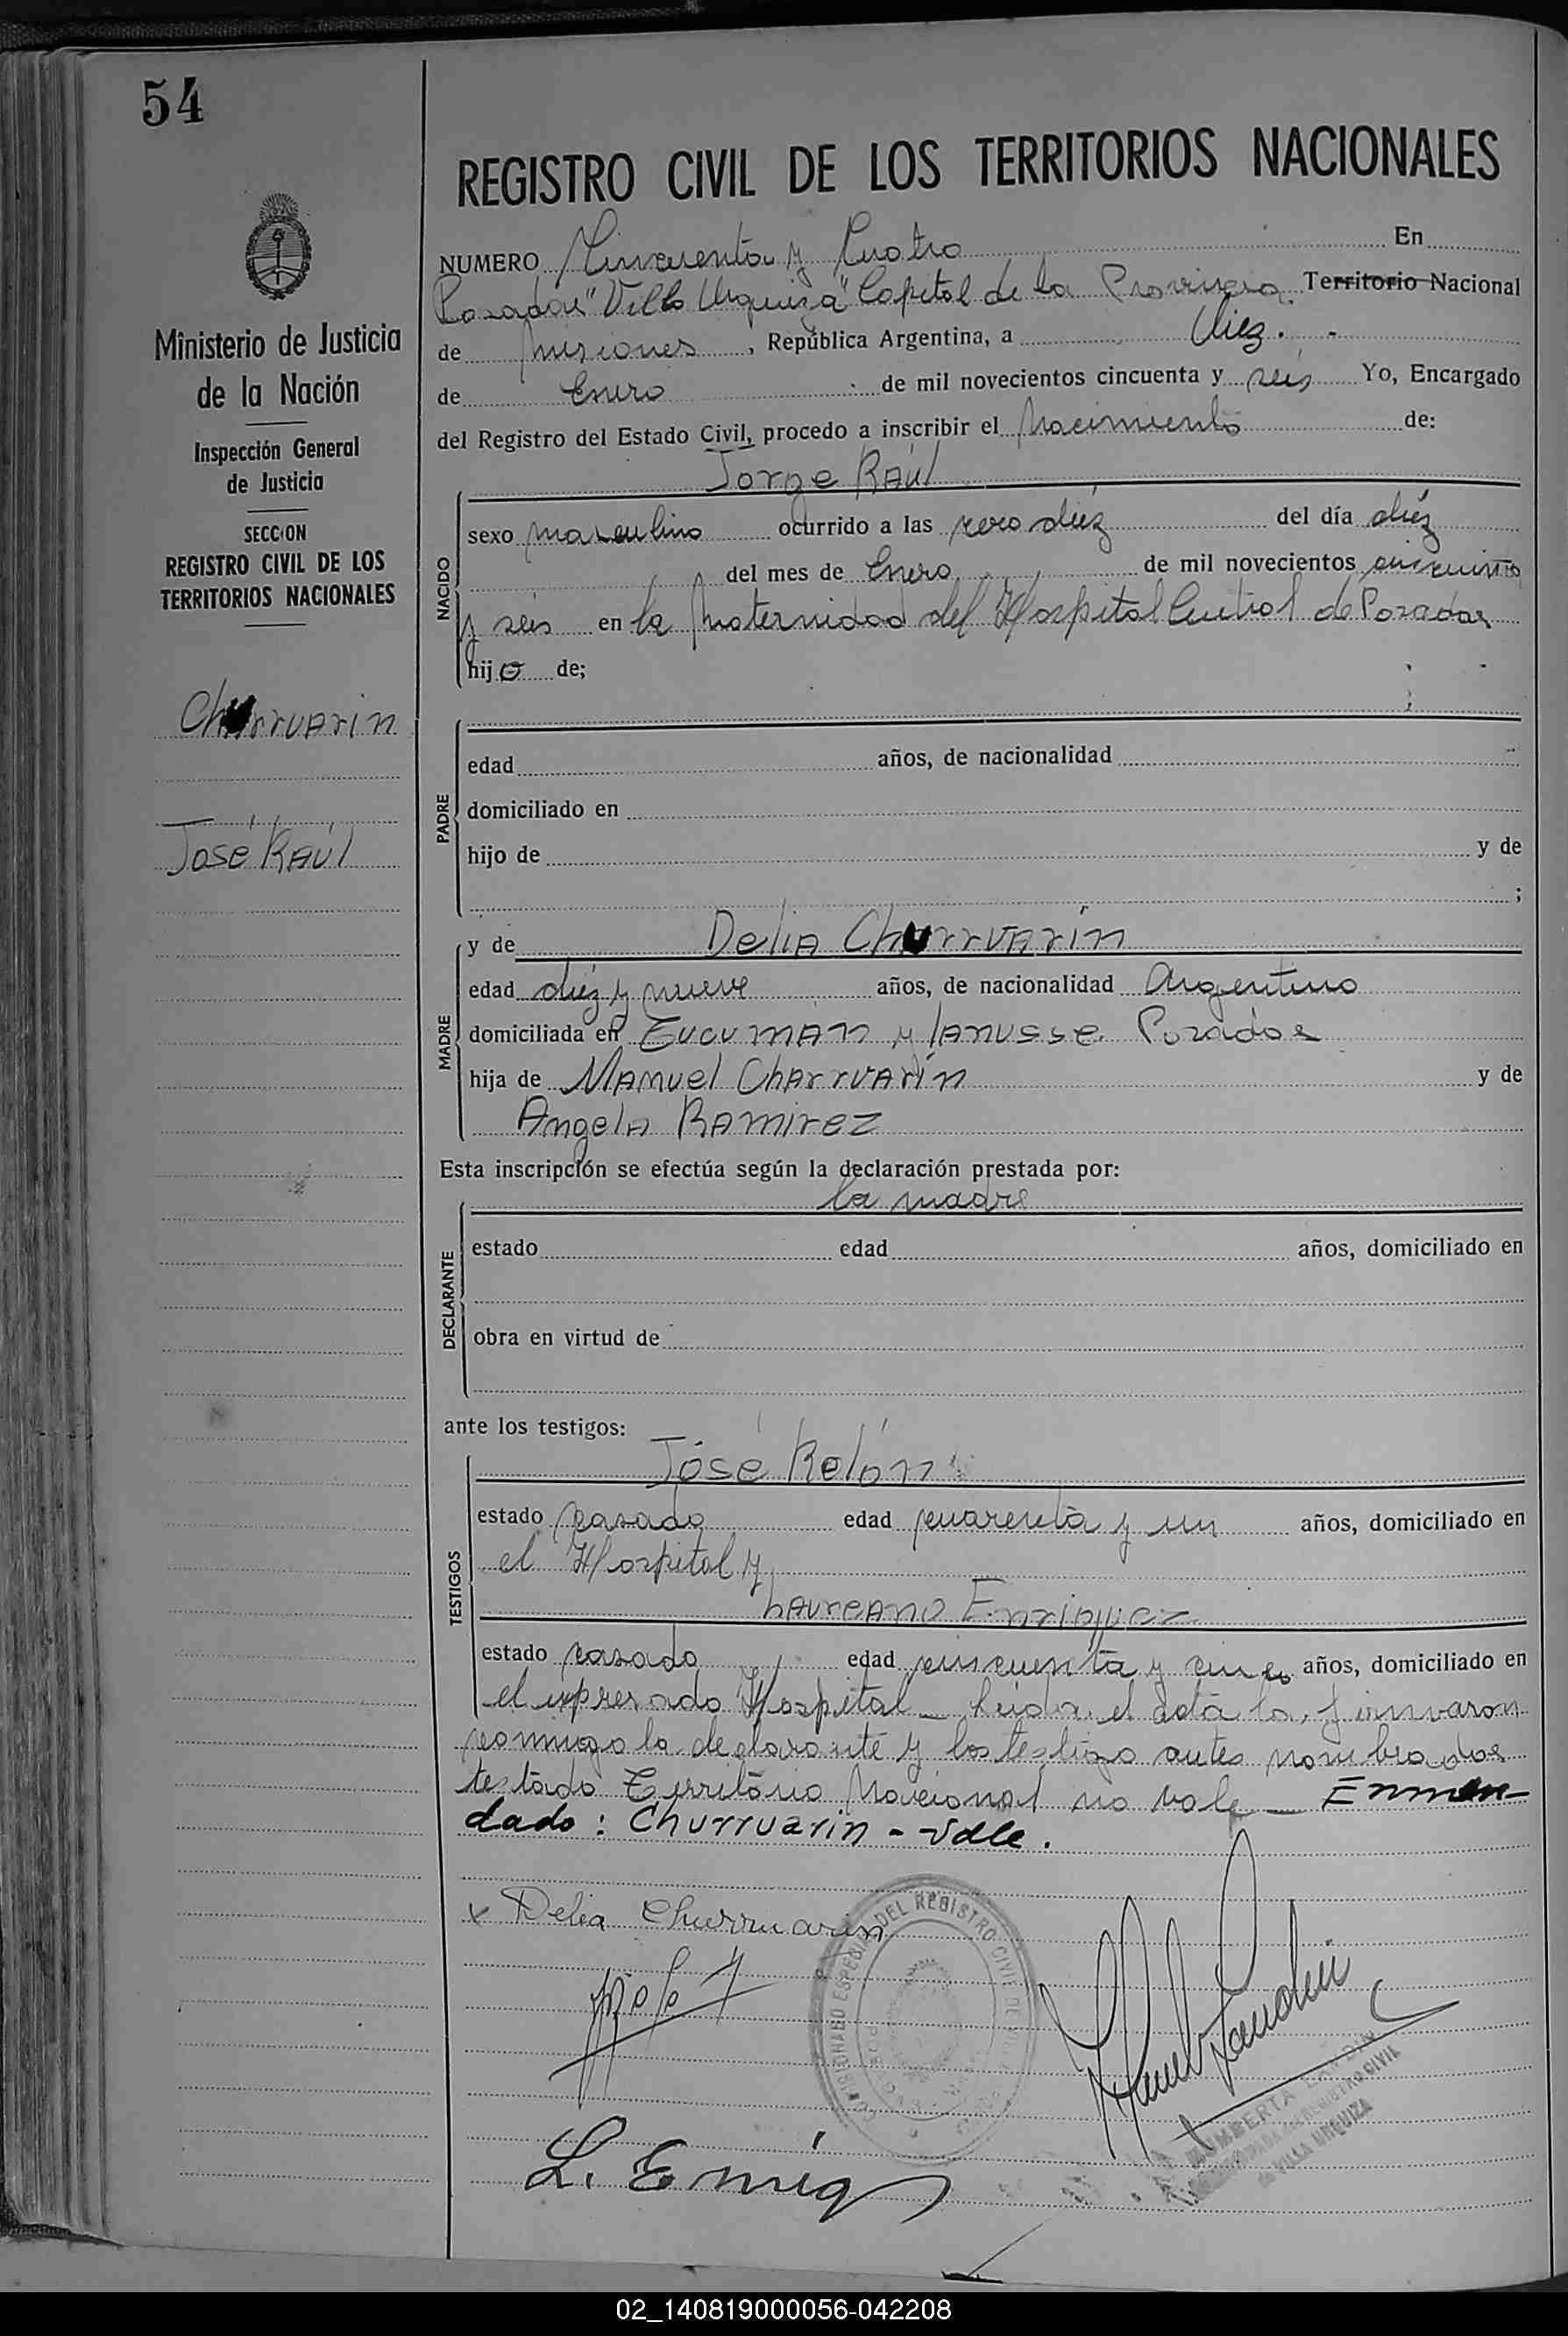 54
REGISTRO CIVIL DE LOS TERRITORIOS NACIONALES
NUMERO Cincuenta y Cuatro En
Posadas "Villa Urquiza" Capital de la Provincia. Territorio Nacional
de Misiones, República Argentina, a diez.
de Enero de mil novecientos cincuenta y seis Yo, Encargado
del Registro del Estado Civil, procedo a inscribir el Nacimiento de:
Jorge Raúl
Ministerio de Justicia
de la Nación
Inspección General
de Justicia
SECCION
REGISTRO CIVIL DE LOS
TERRITORIOS NACIONALES
Churruarin
José Raúl
NACIDO
sexo masculino ocurrido a las cero diéz del día diéz
del mes de Enero de mil novecientos cincuenta
y seis en la Maternidad del Hospital Central de Posadas
hijo de;
PADRE
edad años, de nacionalidad
domiciliado en
hijo de y de
;
MADRE
y de Delia Churruarín
edad diéz y nueve años, de nacionalidad Argentina
domiciliada en Tucumán y Lanusse Posadas
hija de Manuel Charruarín y de
Angela Ramirez
Esta inscripción se efectúa según la declaración prestada por:
la madre
DECLARANTE
estado edad años, domiciliado en
obra en virtud de
ante los testigos:
TESTIGOS
José Rolón
estado casado edad cuarenta y un años, domiciliado en
el Hospital y
Laureano Enriquez
estado casado edad cincuenta y cinco años, domiciliado en
el expresado Hospital_ Leida el acta la firmaron
conmigo la declarante y los testigo antes nombrados
testado Territorio Nacional no vale _ Enmen-
dado: Churruarin - Vale.
x Delia Churruarin
L. Enriq
DEL REGISTRO CIVIL DE
VILLA URQUIZA
02_140819000056-042208